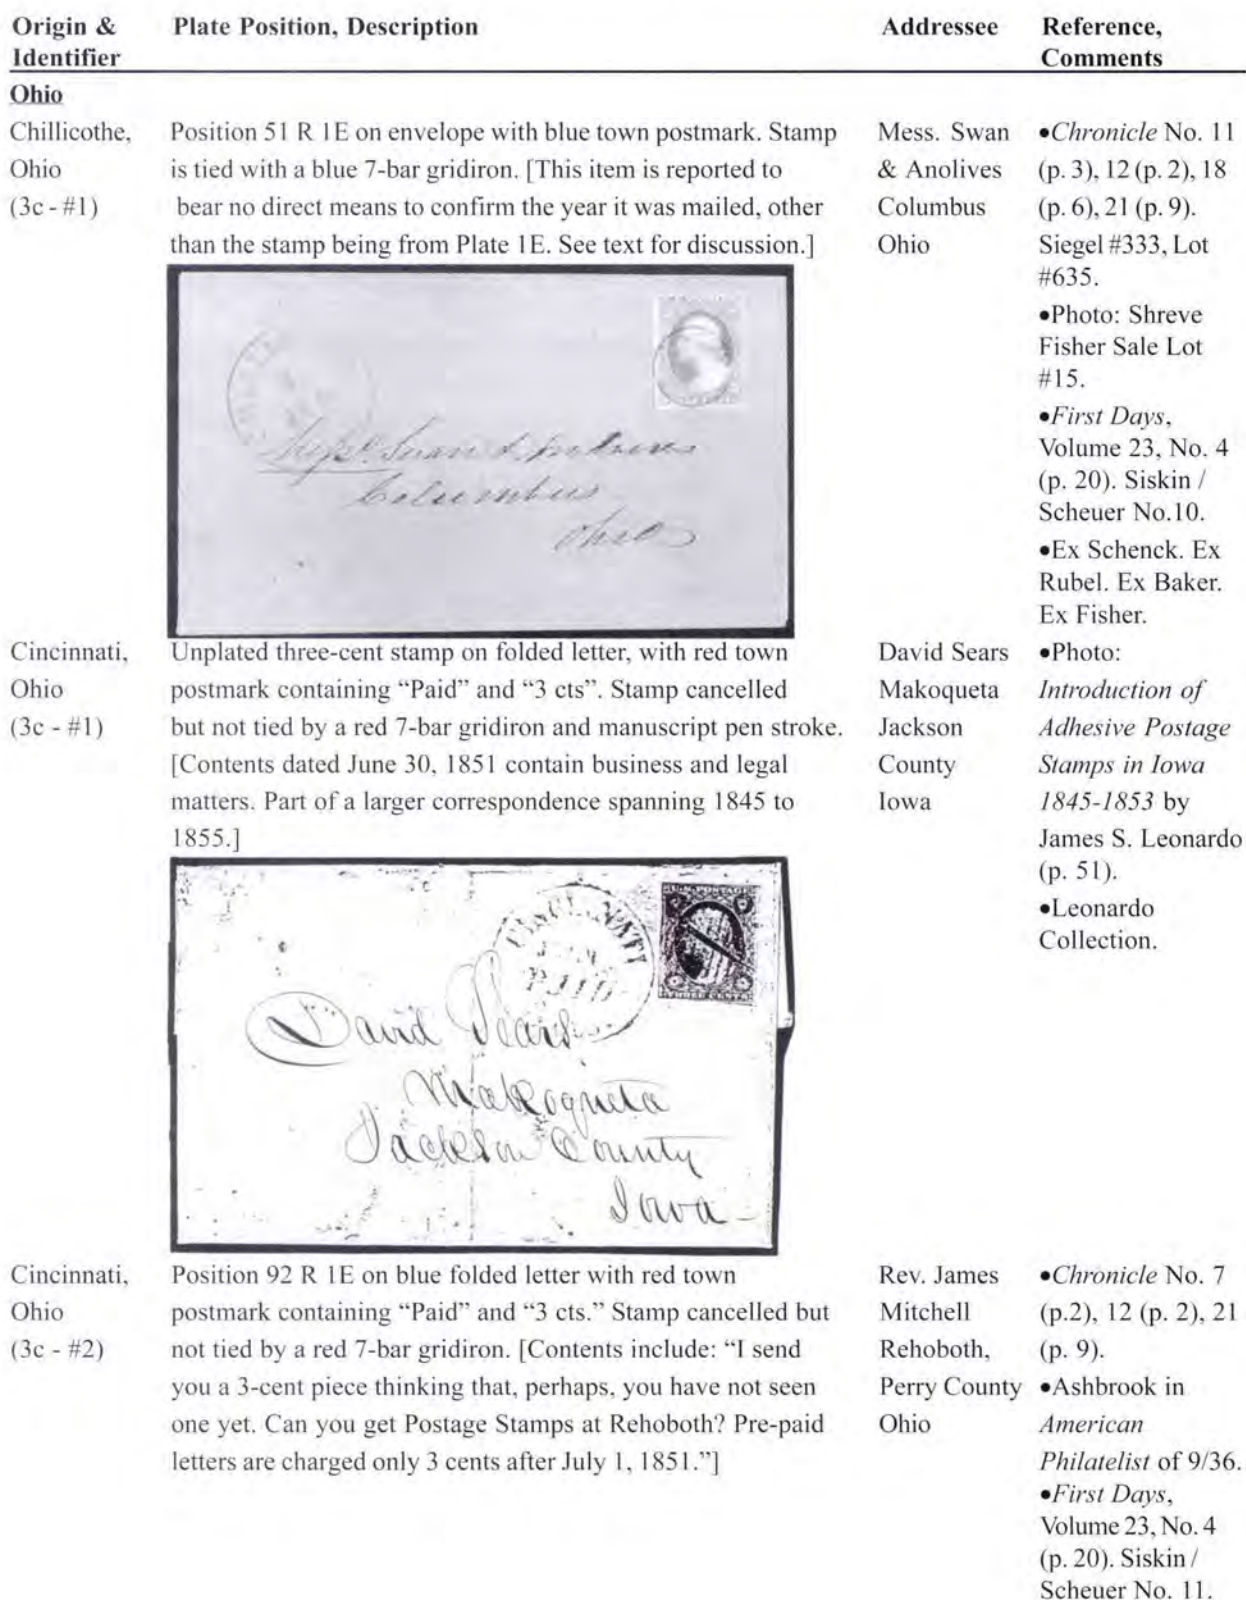 Origin & Plate Position, Description Addressee Reference,
Identifier Comments
Ohio
Chillicothe,
Ohio
(3c - #1)
Position 51 R 1E on envelope with blue town postmark. Stamp
is tied with a blue 7-bar gridiron. [This item is reported to
bear no direct means to confirm the year it was mailed, other
than the stamp being from Plate 1E. See text for discussion.]
Mess. Swan
& Anolives
Columbus
Ohio
•Chronicle No. 11
(p. 3), 12 (p. 2), 18
(p. 6), 21 (p. 9).
Siegel #333, Lot
#635.
•Photo: Shreve
Fisher Sale Lot
#15.
•First Days,
Volume 23, No. 4
(p. 20). Siskin /
Scheuer No.10.
•Ex Schenck. Ex
Rubel. Ex Baker.
Ex Fisher.
Swan &
Columbus
Ohio
Cincinnati,
Ohio
(3c - #1)
Unplated three-cent stamp on folded letter, with red town
postmark containing “Paid” and “3 cts”. Stamp cancelled
but not tied by a red 7-bar gridiron and manuscript pen stroke.
[Contents dated June 30, 1851 contain business and legal
matters. Part of a larger correspondence spanning 1845 to
1855.]
David Sears
Makoqueta
Jackson
County
Iowa
•Photo:
Introduction of
Adhesive Postage
Stamps in Iowa
1845-1853 by
James S. Leonardo
(p. 51).
•Leonardo
Collection.
CINCINNATI
PAID
U.S. POSTAGE
THREE CENTS
David Sears
Makoqueta
Jackson County
Iowa
Cincinnati,
Ohio
(3c - #2)
Position 92 R 1E on blue folded letter with red town
postmark containing “Paid” and “3 cts.” Stamp cancelled but
not tied by a red 7-bar gridiron. [Contents include: “I send
you a 3-cent piece thinking that, perhaps, you have not seen
one yet. Can you get Postage Stamps at Rehoboth? Pre-paid
letters are charged only 3 cents after July 1, 1851.”]
Rev. James
Mitchell
Rehoboth,
Perry County
Ohio
•Chronicle No. 7
(p.2), 12 (p. 2), 21
(p. 9).
•Ashbrook in
American
Philatelist of 9/36.
•First Days,
Volume 23, No. 4
(p. 20). Siskin /
Scheuer No. 11.